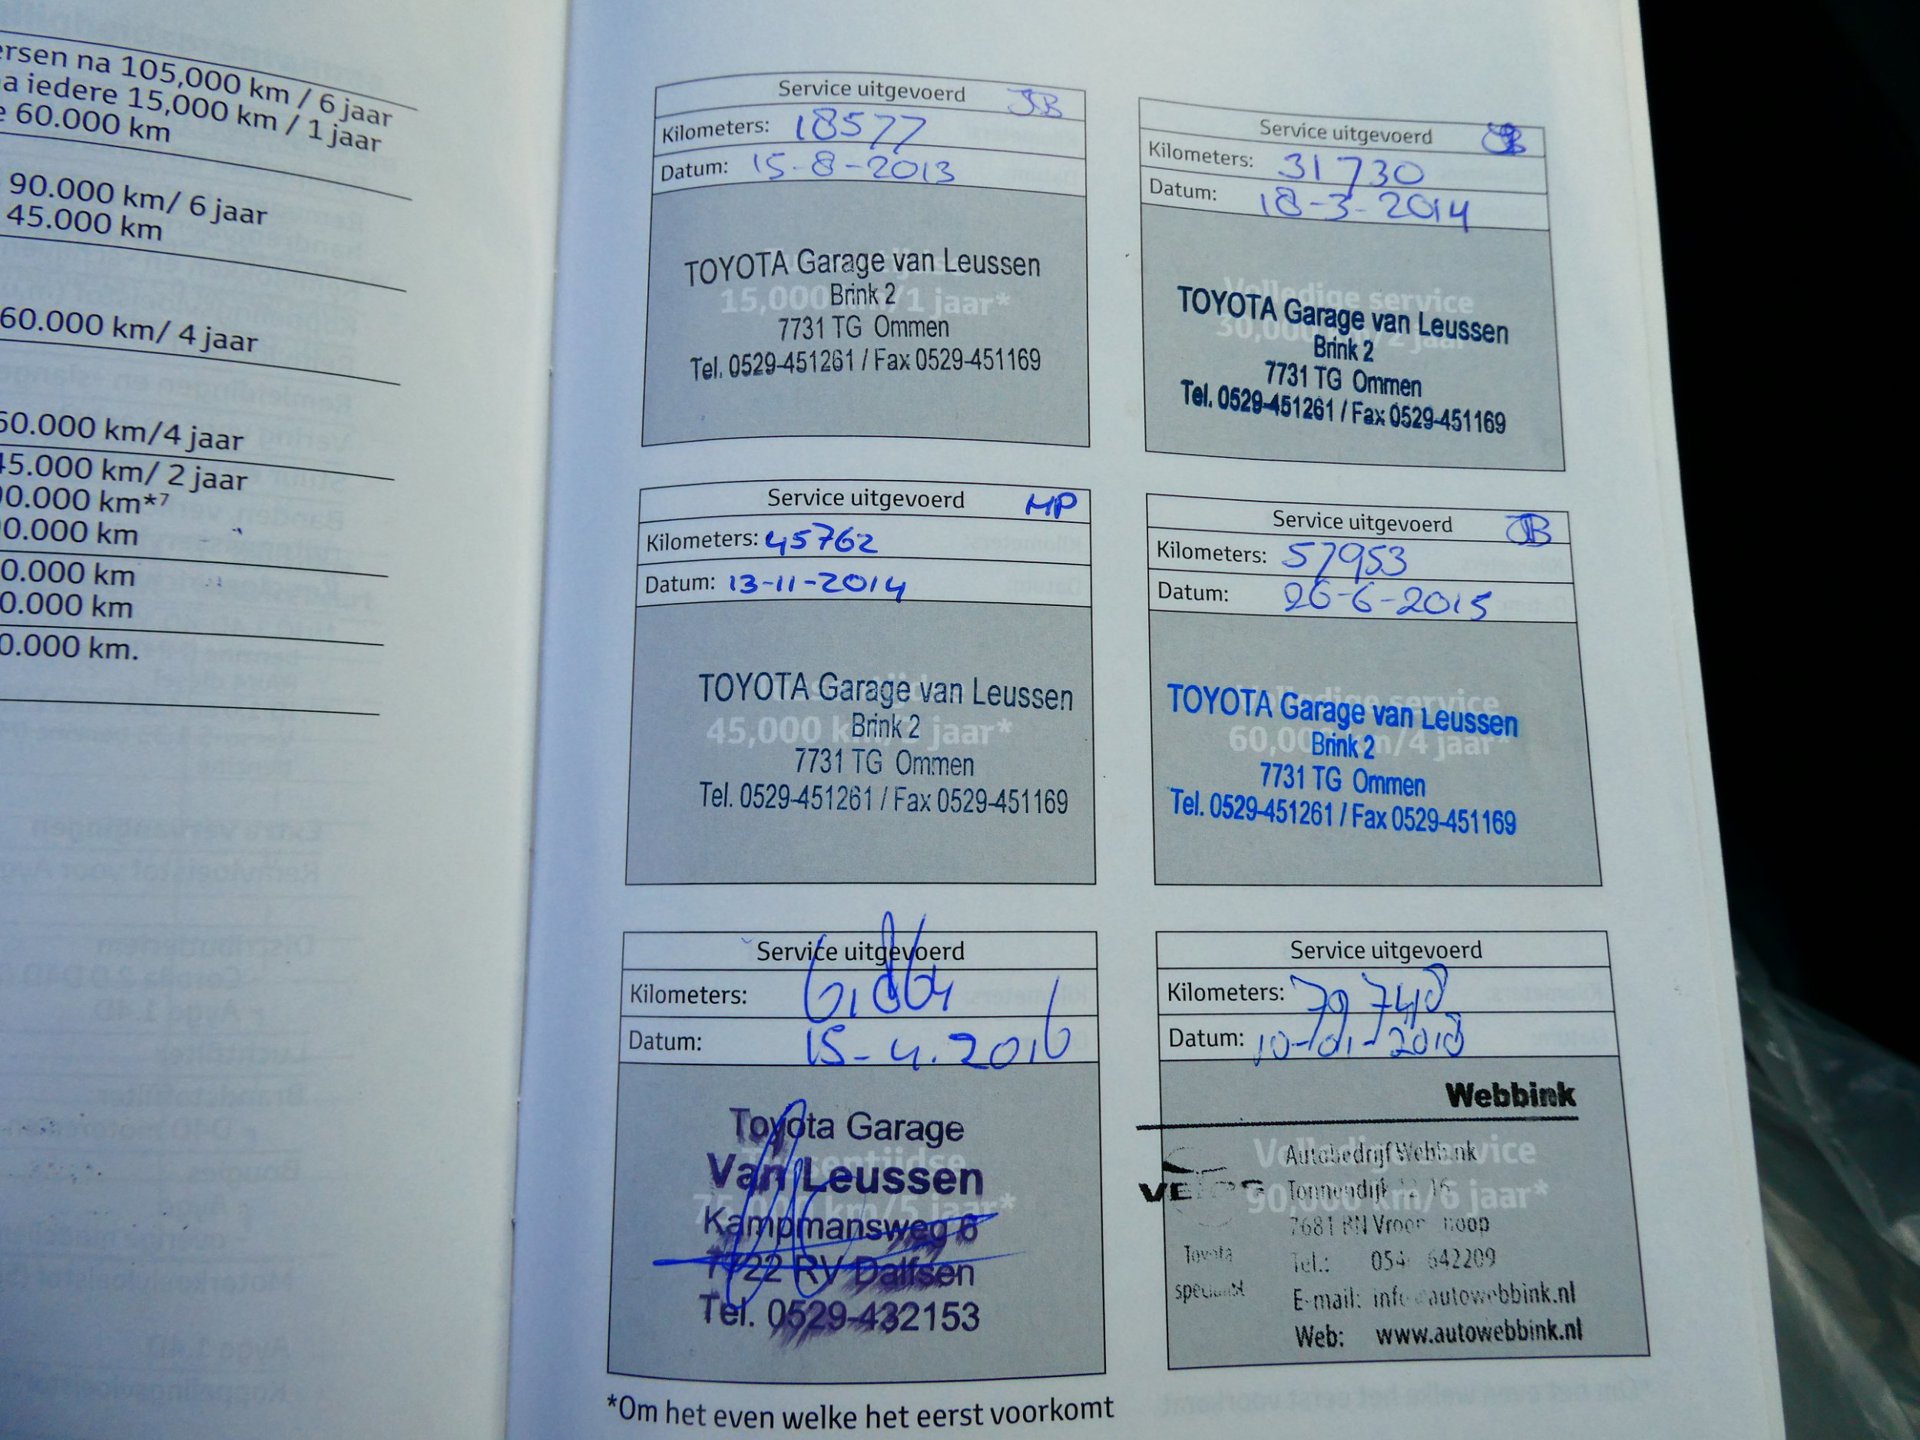 ersen na 105,000 km / 6 jaar
a iedere 15,000 km / 1 jaar
e 60.000 km
90.000 km/ 6 jaar
45.000 km
60.000 km/ 4 jaar
60.000 km/4 jaar
45.000 km/ 2 jaar
00.000 km*7
00.000 km
0.000 km
0.000 km
0.000 km.
Service uitgevoerd JB
Kilometers: 18577
Datum: 15-8-2013
15,000 km/1 jaar*
TOYOTA Garage van Leussen
Brink 2
7731 TG Ommen
Tel. 0529-451261 / Fax 0529-451169
Service uitgevoerd
Kilometers: 31730
Datum: 18-3-2014
Volledige service
30,000 km/2 jaar*
TOYOTA Garage van Leussen
Brink 2
7731 TG Ommen
Tel. 0529-451261 / Fax 0529-451169
Service uitgevoerd MP
Kilometers: 45762
Datum: 13-11-2014
45,000 km/ jaar*
TOYOTA Garage van Leussen
Brink 2
7731 TG Ommen
Tel. 0529-451261 / Fax 0529-451169
Service uitgevoerd JB
Kilometers: 57953
Datum: 26-6-2015
Volledige service
60,000 km/4 jaar*
TOYOTA Garage van Leussen
Brink 2
7731 TG Ommen
Tel. 0529-451261 / Fax 0529-451169
Service uitgevoerd
Kilometers:
Datum: 15-4.2016
Tussentijdse
75,000 km/5 jaar*
Toyota Garage
Van Leussen
Kampmansweg 8
7722 RV Dalfsen
Tel. 0529-432153
Service uitgevoerd
Kilometers: 79748
Datum: 10-01-2018
Volledige service
90,000 km/6 jaar*
Webbink
Autobedrijf Webbink
Tonnendijk
7681 BN Vroomshoop
Tel.: 642209
Toyota
specialist
E-mail: info@autowebbink.nl
Web: www.autowebbink.nl
*Om het even welke het eerst voorkomt